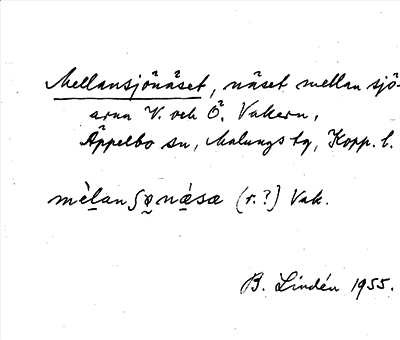 Mellansjönäset, näset mellan sjö-
arna V. och Ö. Vakern,
Äppelbo sn, Malungs tg, Kopp. l.
mèḷanʃø̯næ̣sæ (r.?) Vak.
B. Lindén 1955.